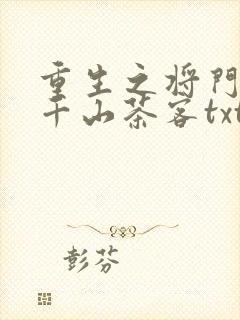 重生之将门
千山茶客txt
彭芬